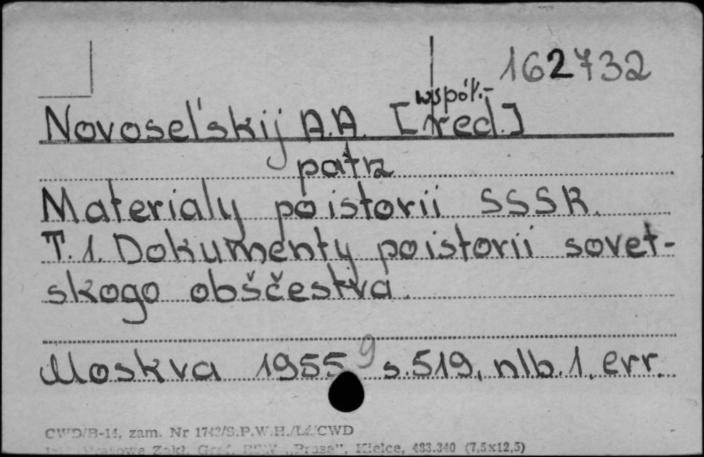 162732
Novosel'skij A.A. [współ.-red.]
patrz
Materialy po istorii SSSR.
T.1. Dokumenty po istorii sovet-
skogo obščestva.
Moskva 1955 9 s.519, nlb.1, err.
CWD/B-14, zam. Nr 1742/S.P.W.H./L4/CWD
Zakł. Graf. RSW „Prasa", Kielce, 483.340 (7,5x12,5)